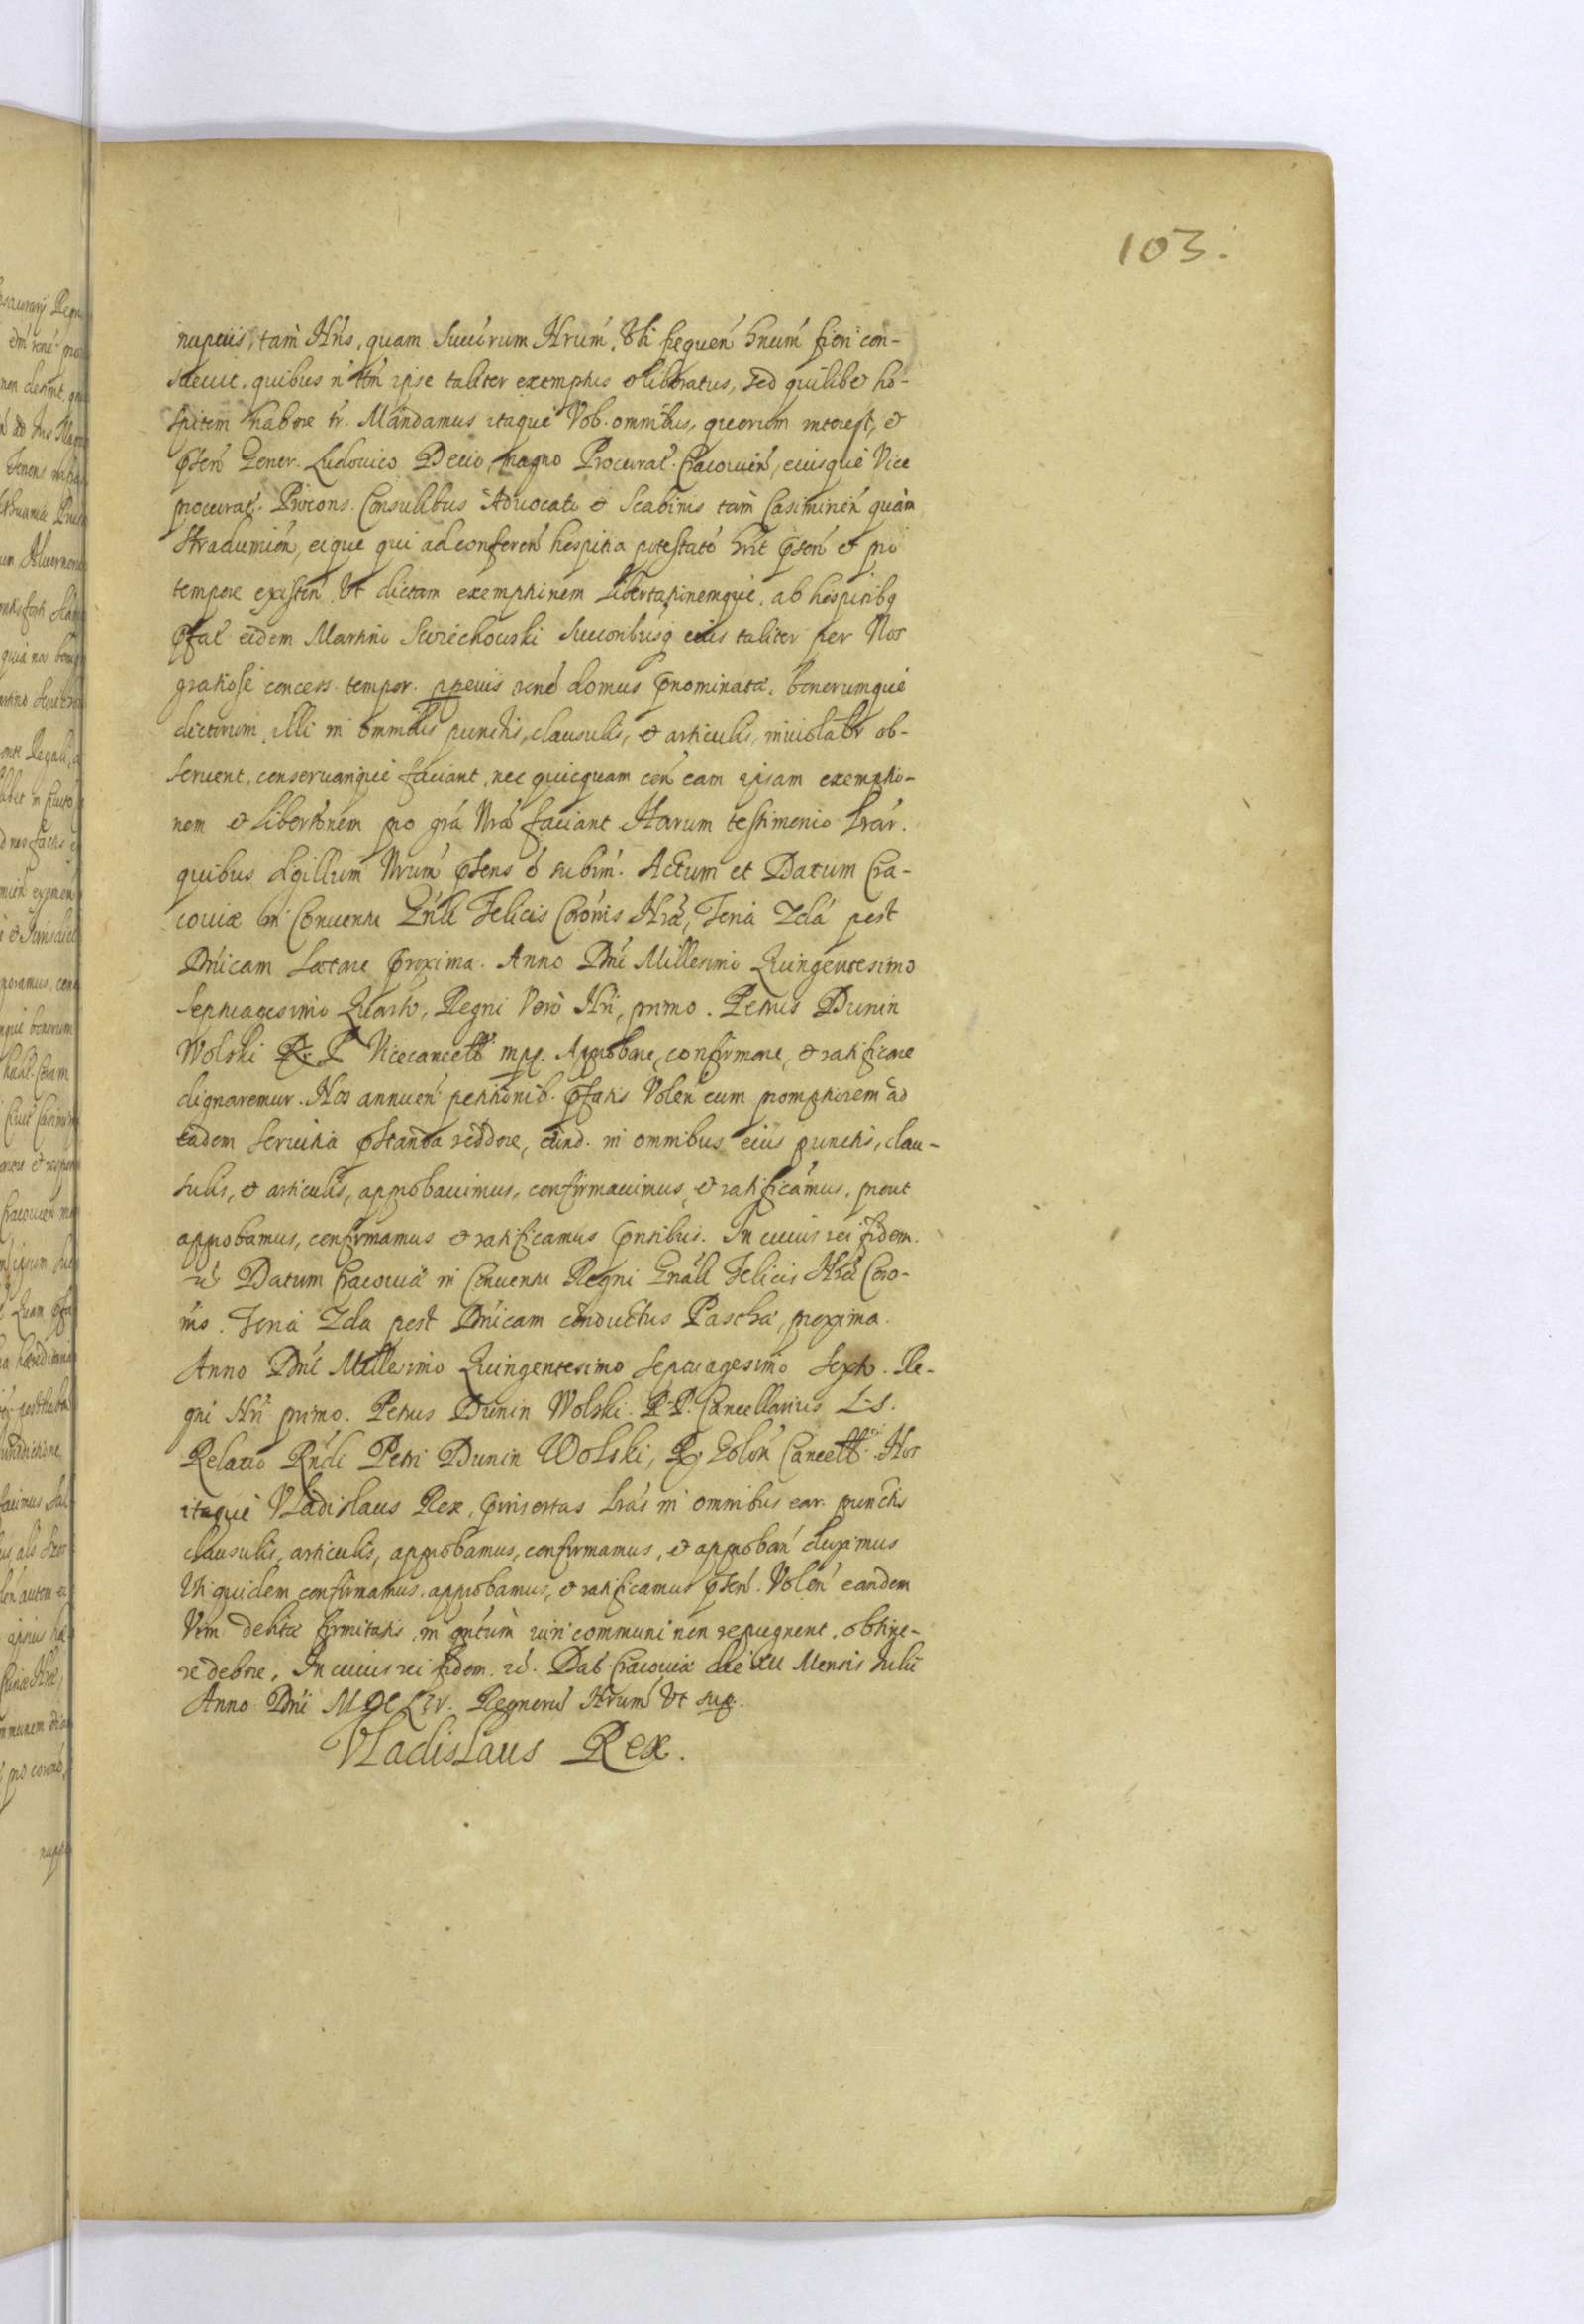 103.
nuptiis, tam Nris, quam Succrum Nrum, Uti frequen hnum fieri con-
suevit. quibus n ttm ipse taliter exemptus et liberatus, sed quilibet ho-
spitem habere tr. Mandamus itaque Vob. omnibus, quorum interest, et
pnter Gener. Ludovico Decio, magno Procurat. Cracovien, eiusque Vice
procurat. Procons. Consulibus Advocato et Scabinis tam Casimirien quam
Stradomien, eique qui ad conferen hospitia potestate hrit pnten et pro
tempore existen Ut dictam exemptionem Libertationemque, ab hospitibq
pfat eidem Martino Swiechowski Succoribusq eius taliter per Nos
gratiose concess. tempor. ppetuis rone domus pnominatae, bonorumque
dictorum, illi in omnibus punctis, clausulis, et articulis, inviolabr ob-
servent, conservarique faciant, nec quicquam con eam ipsam exemptio-
nem et libertonem pro gra Nra faciant Harum testimonio lrar.
quibus Sigillum Nrum pntens e subim. Actum et Datum Cra-
coviae in Conventu Gnli Felicis Coronis Nrae, Feria 2da post
Dnicam Laetare proxima. Anno Dni Millesimo Quingentesimo
Septuagesimo Quarto, Regni Vero Nri, primo. Petrus Dunin
Wolski R. P. Vicecancell mpp. Approbare, confirmare, et ratificare
dignaremur. Nos annuen petitionib. pfatis Volen eum promptiorem ad
eadem servitia pstanda reddere, eund. in omnibus eius punctis, clau-
sulis, et articulis, approbavimus, confirmavimus, et ratificamus, prout
approbamus, confirmamus et ratificamus pntibus. In cuius rei fidem.
etc Datum Cracoviae in Conventu Regni Gnali Felicis Nrae Coro-
nis. Feria 2da post Dnicam conductus Paschae, proxima.
Anno Dni Millesimo Quingentesimo Septuagesimo Sexto. Re-
gni Nri primo. Petrus Dunin Wolski. R. P. Cancellarius L. S.
Relatio Rndi Petri Dunin Wolski, R. Polon Cancell. Nos
itaque Vladislaus Rex, pinsertas lras in omnibus ear. punctis
clausulis, articulis, approbamus, confirmamus, et approban duximus
Uti quidem confirmamus, approbamus, et ratificamus pnten. Volen eandem
Vim debitae firmitatis, in qntum iuri communi non repugnent, obtine-
re debere, In cuius rei fidem. etc. Dat. Cracoviae die XII Mensis Julii
Anno Dni Regnoru Nrum Ut sup.
Vladislaus Rex.